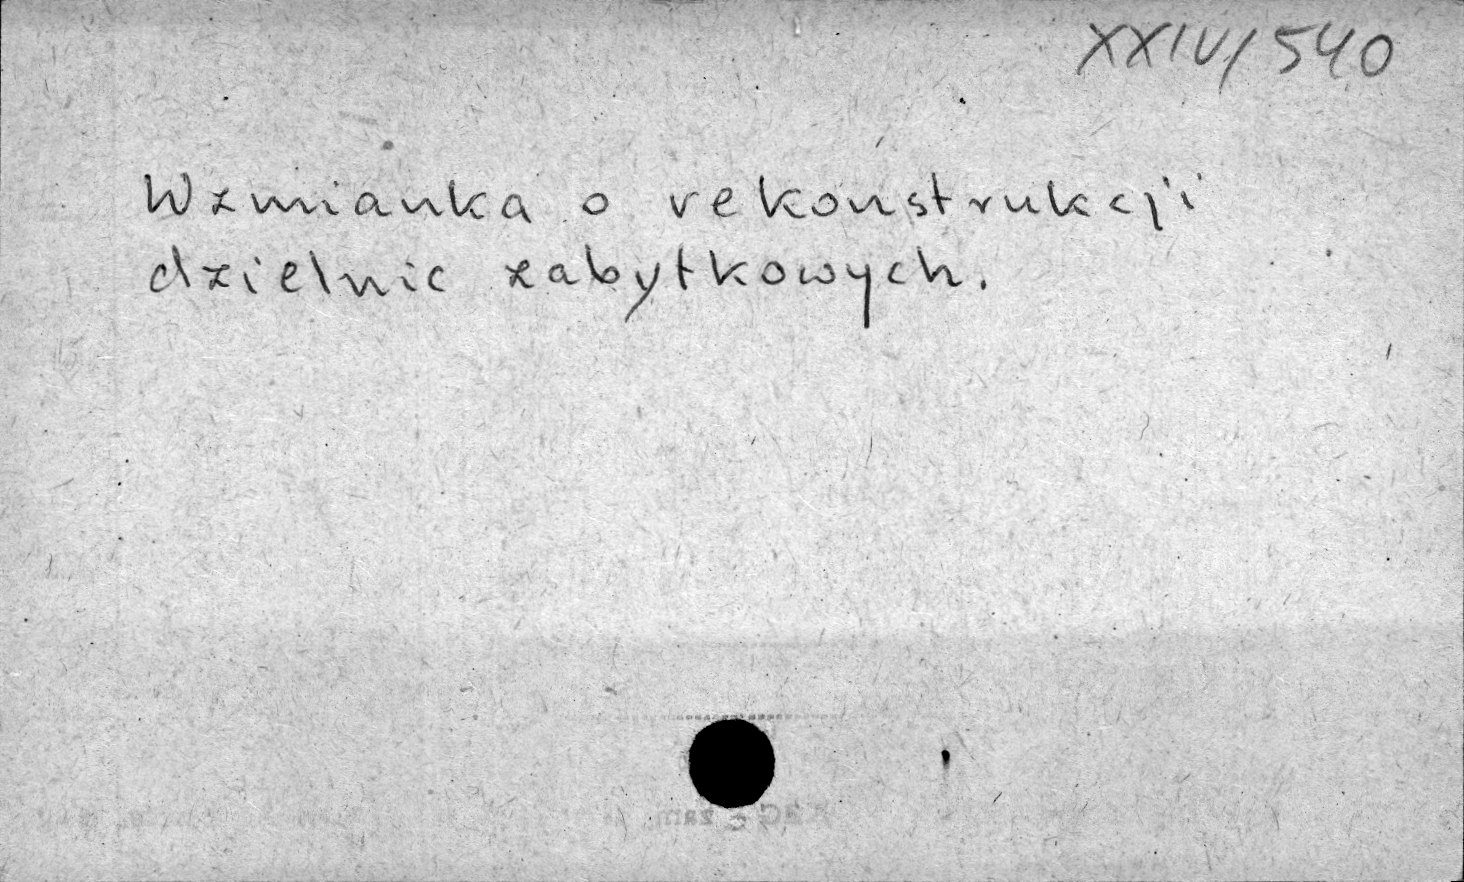 XXIV/540
Wzmianka o rekonstrukcji
dzielnic zabytkowych.